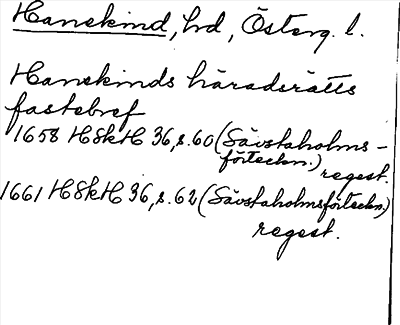 Hanekind, hd, Österg. l.
Hanekinds häradsrätts
fastebref
1658 HSkH 36, s. 60 (Sävstaholms-
förteckn.)
regest.
1661 HSkH 36, s. 62 (Sävstaholmsförteckn.)
regest.